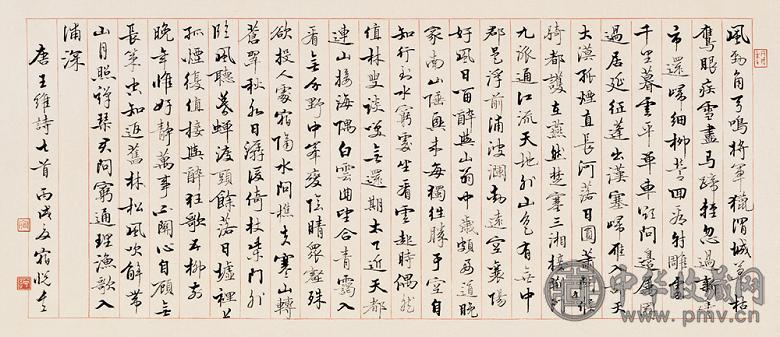 風勁角弓鳴將軍獵渭城草枯
鷹眼疾雪盡馬蹄輕忽過新豐
市還歸細柳營回看射雕處
千里暮雲平單車欲問邊屬國
過居延征蓬出漢塞歸雁入胡天
大漠孤煙直長河落日圓蕭關逢候
騎都護在燕然楚塞三湘接荊門
九派通江流天地外山色有無中
郡邑浮前浦波瀾動遠空襄陽
好風日留醉與山翁中歲頗好道晚
家南山陲興來每獨往勝事空自
知行到水窮處坐看雲起時偶然
值林叟談笑無還期太乙近天都
連山接海隅白雲回望合青靄入
看無分野中峰變陰晴衆壑殊
欲投人處宿隔水問樵夫寒山轉
蒼翠秋水日潺湲倚杖柴門外
臨風聽暮蟬渡頭餘落日墟裡上
孤煙復值接輿醉狂歌五柳前
晚年惟好靜萬事不關心自顧無
長策空知返舊林松風吹解帶
山月照彈琴君問窮通理漁歌入
浦深
唐王維詩七首丙戌
中华收藏网
www.pmv.cn